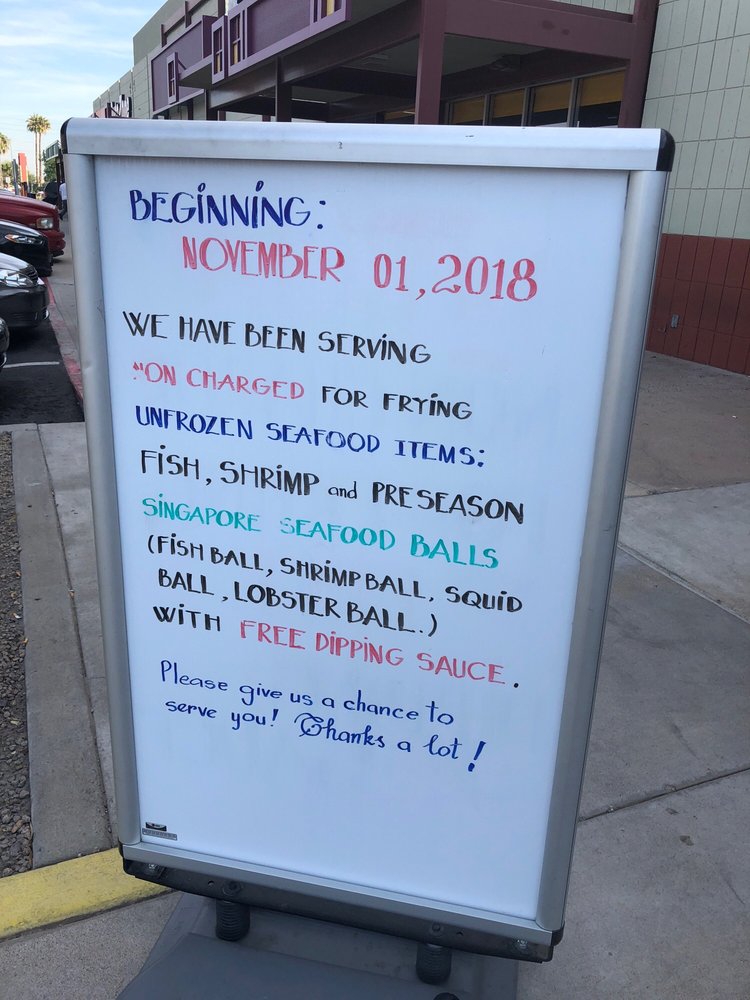 BEGINNING:
NOVEMBER 01, 2018
WE HAVE BEEN SERVING
"ON CHARGED FOR FRYING
UNFROZEN SEAFOOD ITEMS:
FISH, SHRIMP and PRESEASON
SINGAPORE SEAFOOD BALLS
(FISH BALL, SHRIMP BALL, SQUID
BALL, LOBSTER BALL.)
WITH FREE DIPPING SAUCE.
Please give us a chance to
serve you! Thanks a lot!